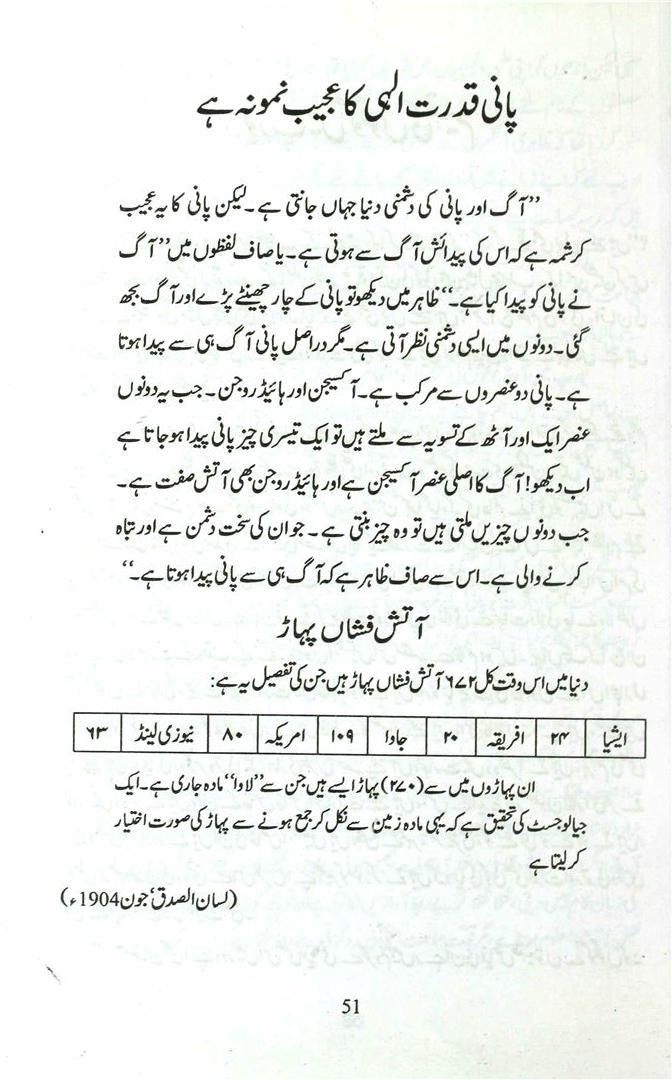 پانی قدرت الہی کا عجیب نمونہ ہے
”آگ اور پانی کی دشمنی دنیا جہاں جانتی ہے۔ لیکن پانی کا یہ عجیب
کرشمہ ہے کہ اس کی پیدائش آگ سے ہوتی ہے۔ یا صاف لفظوں میں ”آگ
نے پانی کو پیدا کیا ہے۔“ ظاہر میں دیکھو تو پانی کے چار چھینٹے پڑے اور آگ بجھ
گئی۔ دونوں میں ایسی دشمنی نظر آتی ہے۔ مگر دراصل پانی آگ ہی سے پیدا ہوتا
ہے۔ پانی دو عنصروں سے مرکب ہے۔ آکسیجن اور ہائیڈروجن۔ جب یہ دونوں
عنصر ایک اور آٹھ کے تسویہ سے ملتے ہیں تو ایک تیسری چیز پانی پیدا ہو جاتا ہے
اب دیکھو! آگ کا اصلی عنصر آکسیجن ہے اور ہائیڈروجن بھی آتش صفت ہے۔
جب دونوں چیزیں ملتی ہیں تو وہ چیز بنتی ہے۔ جو ان کی سخت دشمن ہے اور تباہ
کرنے والی ہے۔ اس سے صاف ظاہر ہے کہ آگ ہی سے پانی پیدا ہوتا ہے۔“
آتش فشاں پہاڑ
دنیا میں اس وقت کل ۶۷۲ آتش فشاں پہاڑ ہیں جن کی تفصیل یہ ہے:
ایشیا ۲۴ افریقہ ۲۰ جاوا ۱۰۹ امریکہ ۸۰ نیوزی لینڈ ۶۳
ان پہاڑوں میں سے (۲۷۰) پہاڑ ایسے ہیں جن سے ”لاوا“ مادہ جاری ہے۔ ایک
جیالوجسٹ کی تحقیق ہے کہ یہی مادہ زمین سے نکل کر جمع ہونے سے پہاڑ کی صورت اختیار
کر لیتا ہے
(لسان الصدق، جون 1904ء)
51